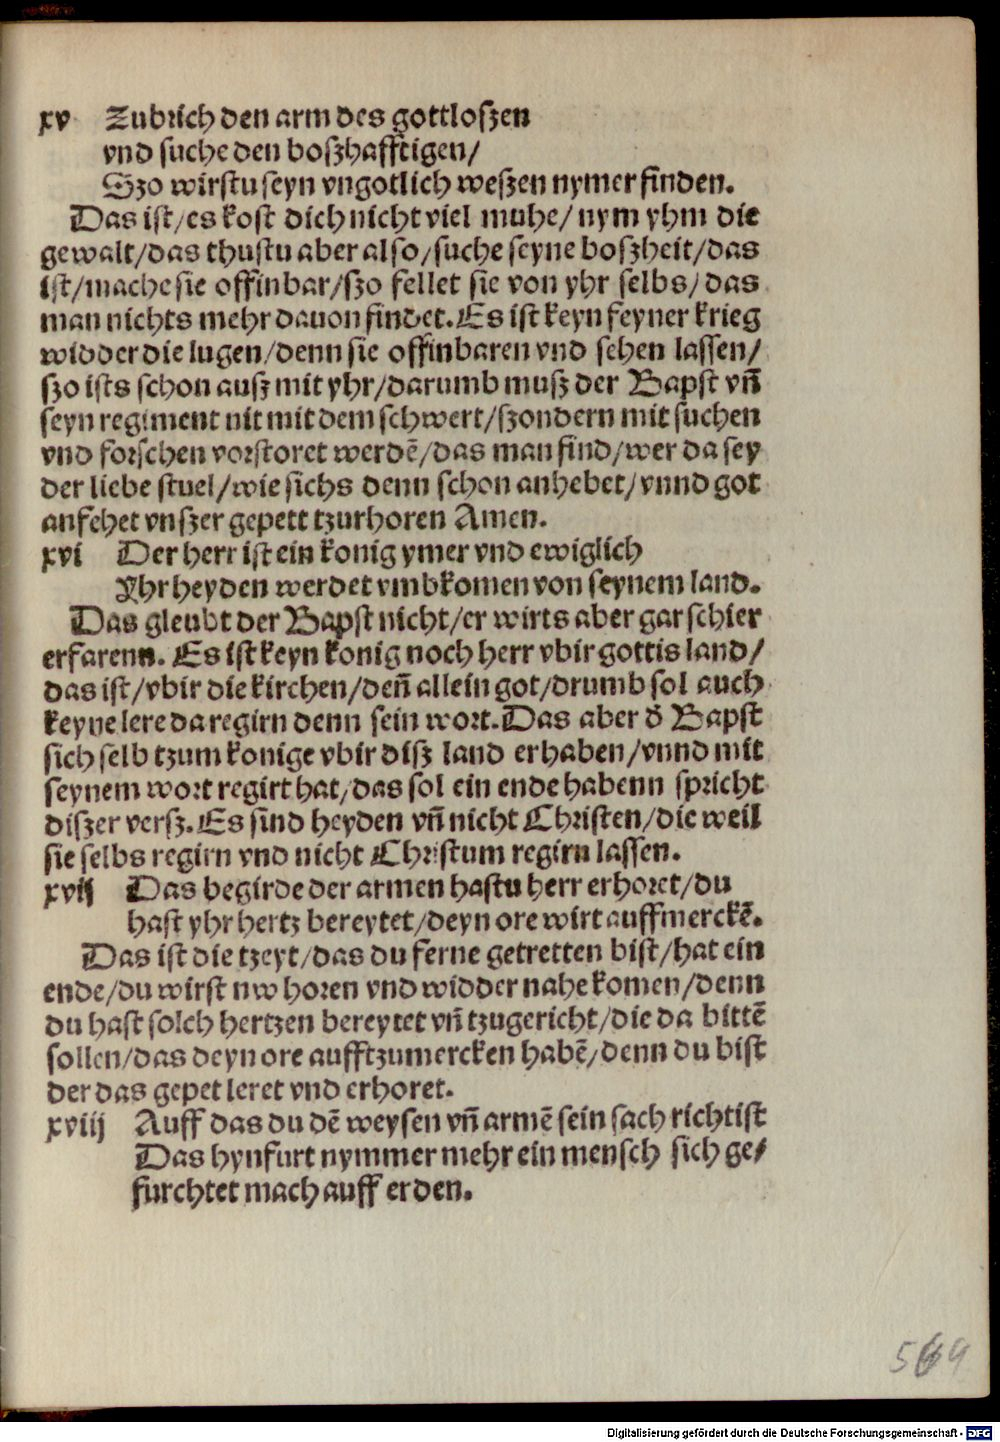 xv Zubrich den arm des gottloſzen
vnd ſuche den boſzhafftigen/
Szo wirſtu ſeyn vngotlich weſzen nymer finden.
Das iſt/es koſt dich nicht viel muhe/ nym yhm die
gewalt/das thuſtu aber alſo/ſuche ſeyne boſzheit/das
iſt/mache sie offinbar/ſzo fellet ſie von yhr ſelbs/das
man nichts mehr dauon findet. Es iſt keyn feyner krieg
widder die lugen/denn ſie offinbaren vnd ſehen laſſen/
ſzo iſts ſchon auſz mit yhr/darumb muſz der Bapſt vn̄
ſeyn regiment nit mit dem ſchwert/ſzondern mit ſuchen
vnd forſchen vorſtoret werdē/das man find/wer da ſey
der liebe ſtuel/wie ſichs denn ſchon anhebet/vnnd got
anfehet vnſzer gepett tzurhoren Amen.
xvi Der herr iſt ein konig ymer vnd ewiglich
Yhr heyden werdet vmbkomen von ſeynem land.
Das gleubt der Bapſt nicht/er wirts aber gar ſchier
erfarenn. Es iſt keyn konig noch herr vbir gottis land/
das iſt/vbir die kirchen/den̄ allein got/drumb ſol auch
keyne lere da regirn denn ſein wort. Das aber d̄ Bapſt
ſich ſelb tzum konige vbir diſz land erhaben/vnnd mit
ſeynem wort regirt hat/das ſol ein ende habenn ſpricht
diſzer verſz. Es ſind heyden vn̄ nicht Chriſten/die weil
ſie ſelbs regirn vnd nicht Chriſtum regirn laſſen.
xvij Das begirde der armen haſtu herr erhoret/du
haſt yhr hertz bereytet/deyn ore wirt auffmerckē.
Das iſt die tzeyt/das du ferne getretten biſt/hat ein
ende/du wirſt nw horen vnd widder nahe komen/denn
du haſt ſolch hertzen bereytet vn̄ tzugericht/die da bittē
ſollen/das deyn ore aufftzumercken habē/denn du biſt
der das gepet leret vnd erhoret.
xviij Auff das du dē weyſen vn̄ armē ſein ſach richtiſt
Das hynfurt nymmer mehr ein menſch ſich ge/
furchtet mach auff erden.
569
Digitalisierung gefördert durch die Deutsche Forschungsgemeinschaft - DFG